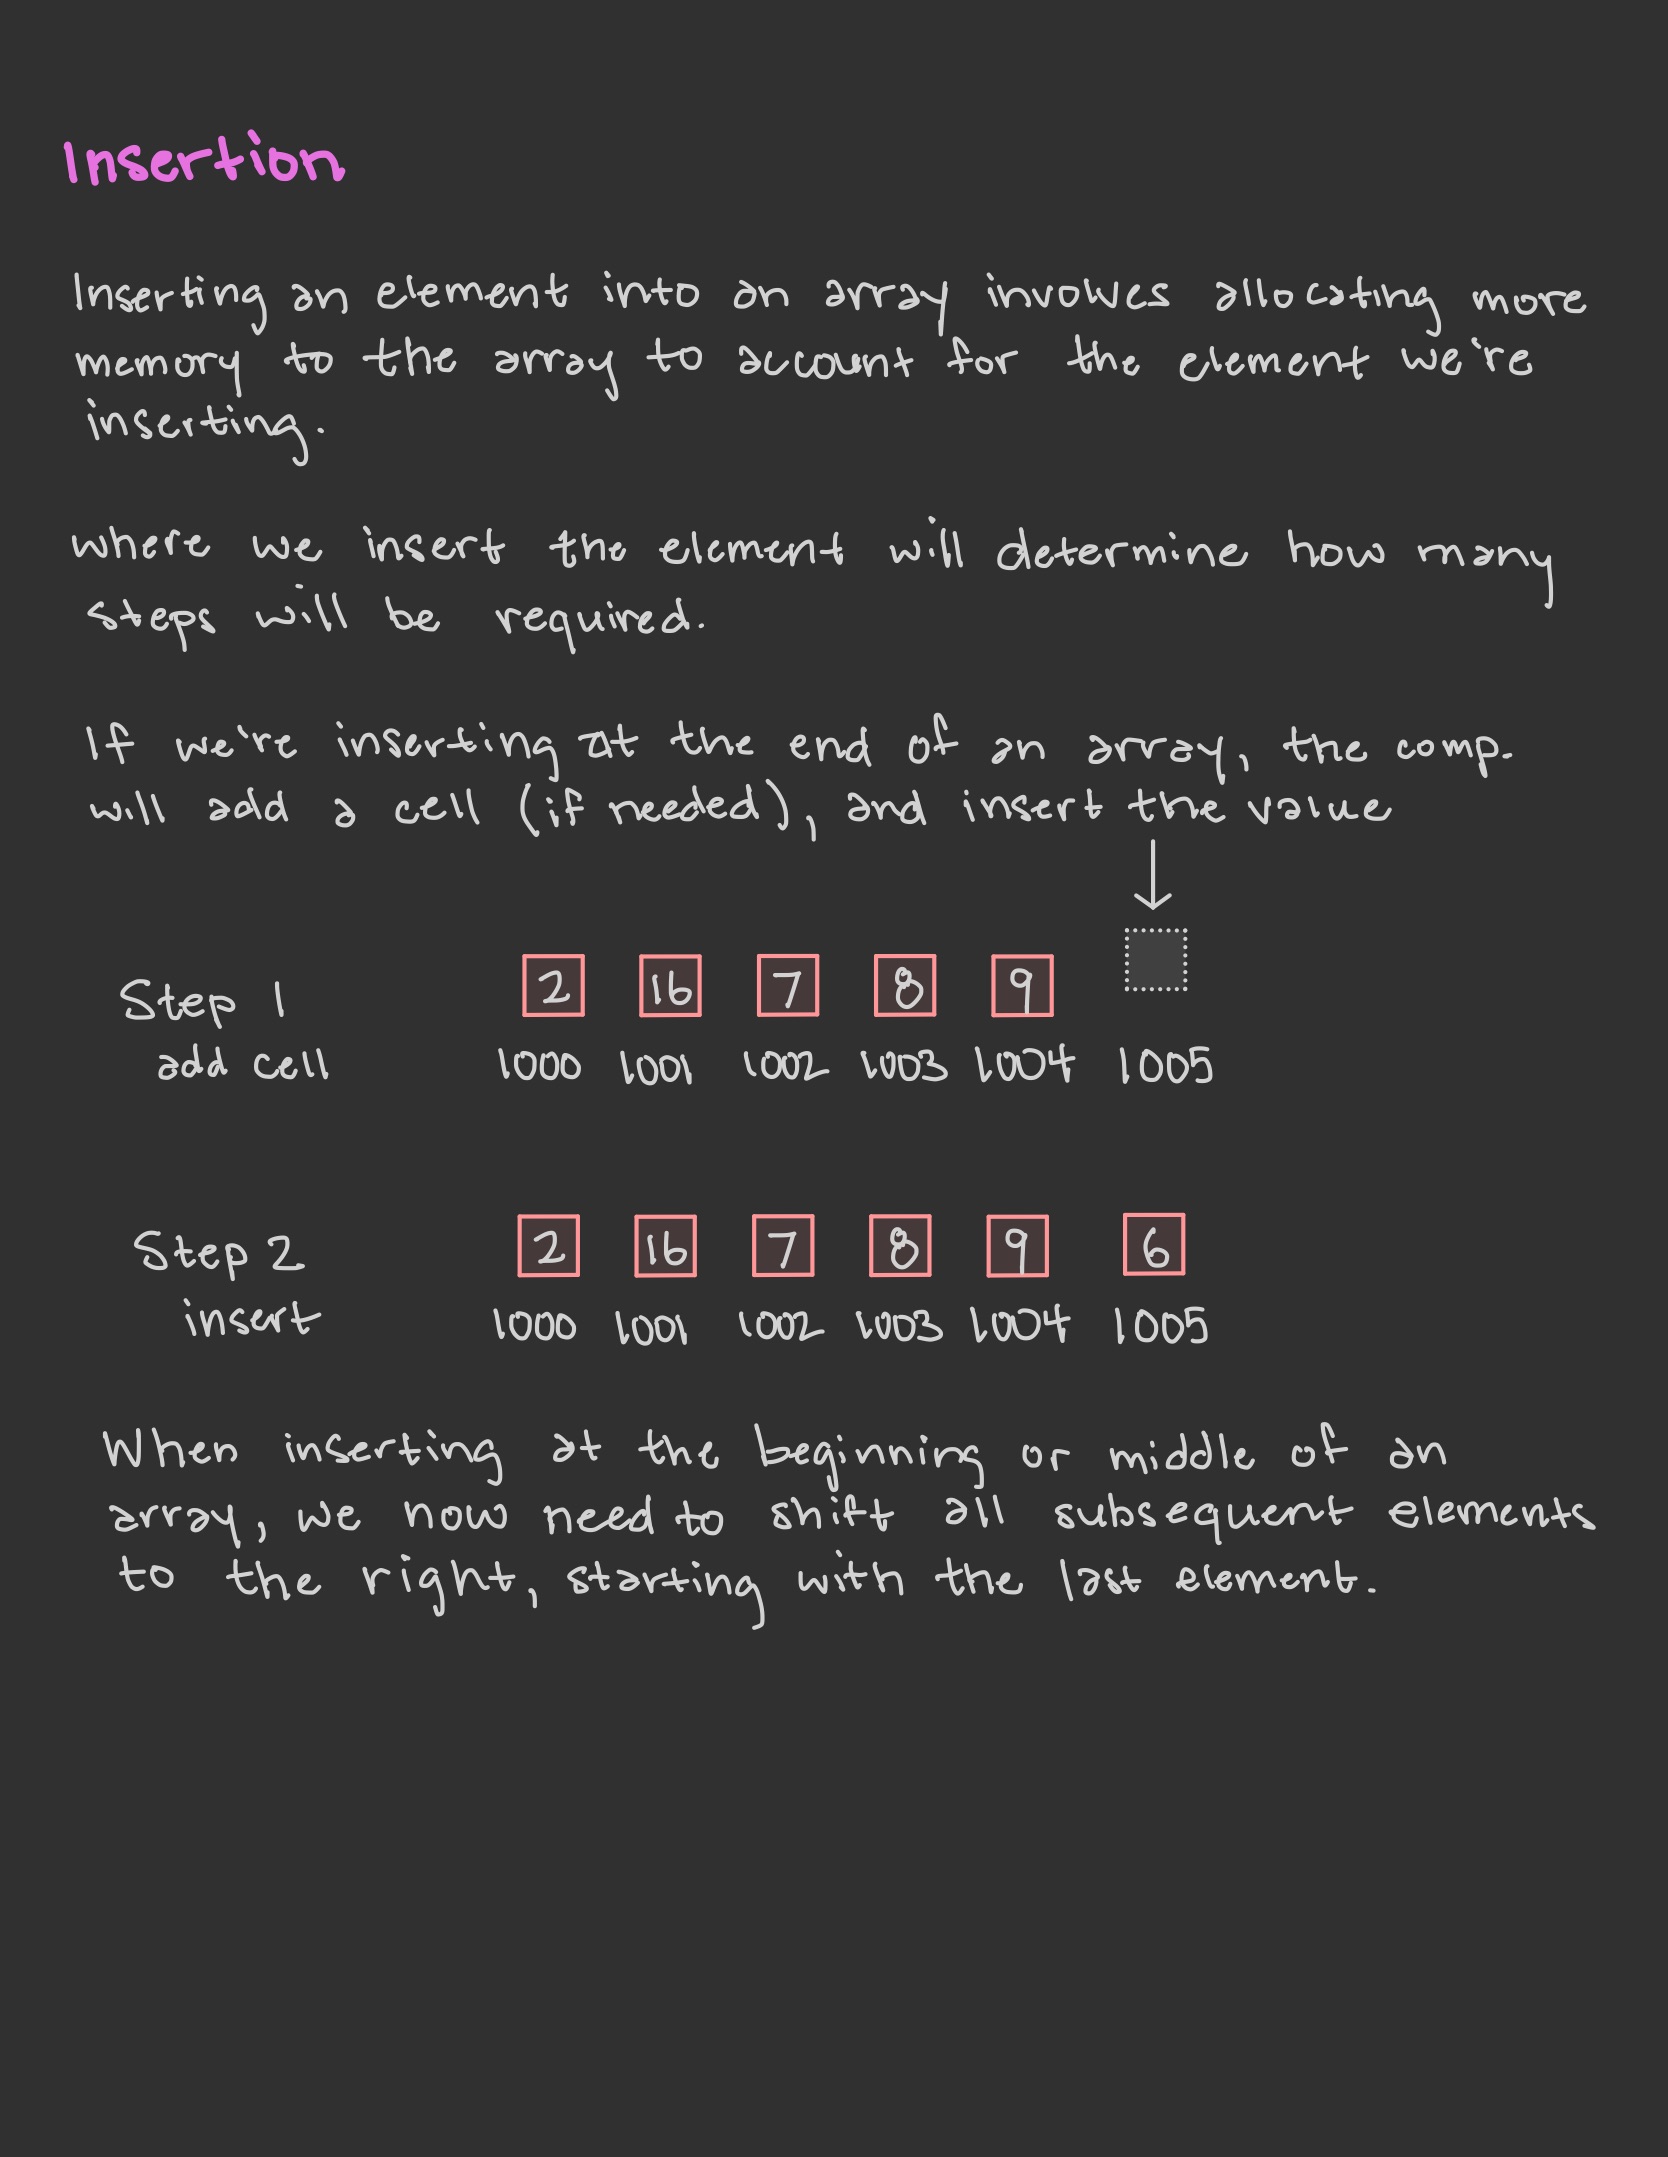 Insertion
Inserting an element into an array involves allocating more
memory to the array to account for the element we're
inserting.
where we insert the element will determine how many
steps will be required.
If we're inserting at the end of an array, the comp.
will add a cell (if needed), and insert the value
Step 1 2 16 7 8 9
add cell 1000 1001 1002 1003 1004 1005
Step 2 2 16 7 8 9 6
insert 1000 1001 1002 1003 1004 1005
When inserting at the beginning or middle of an
array, we now need to shift all subsequent elements
to the right, starting with the last element.